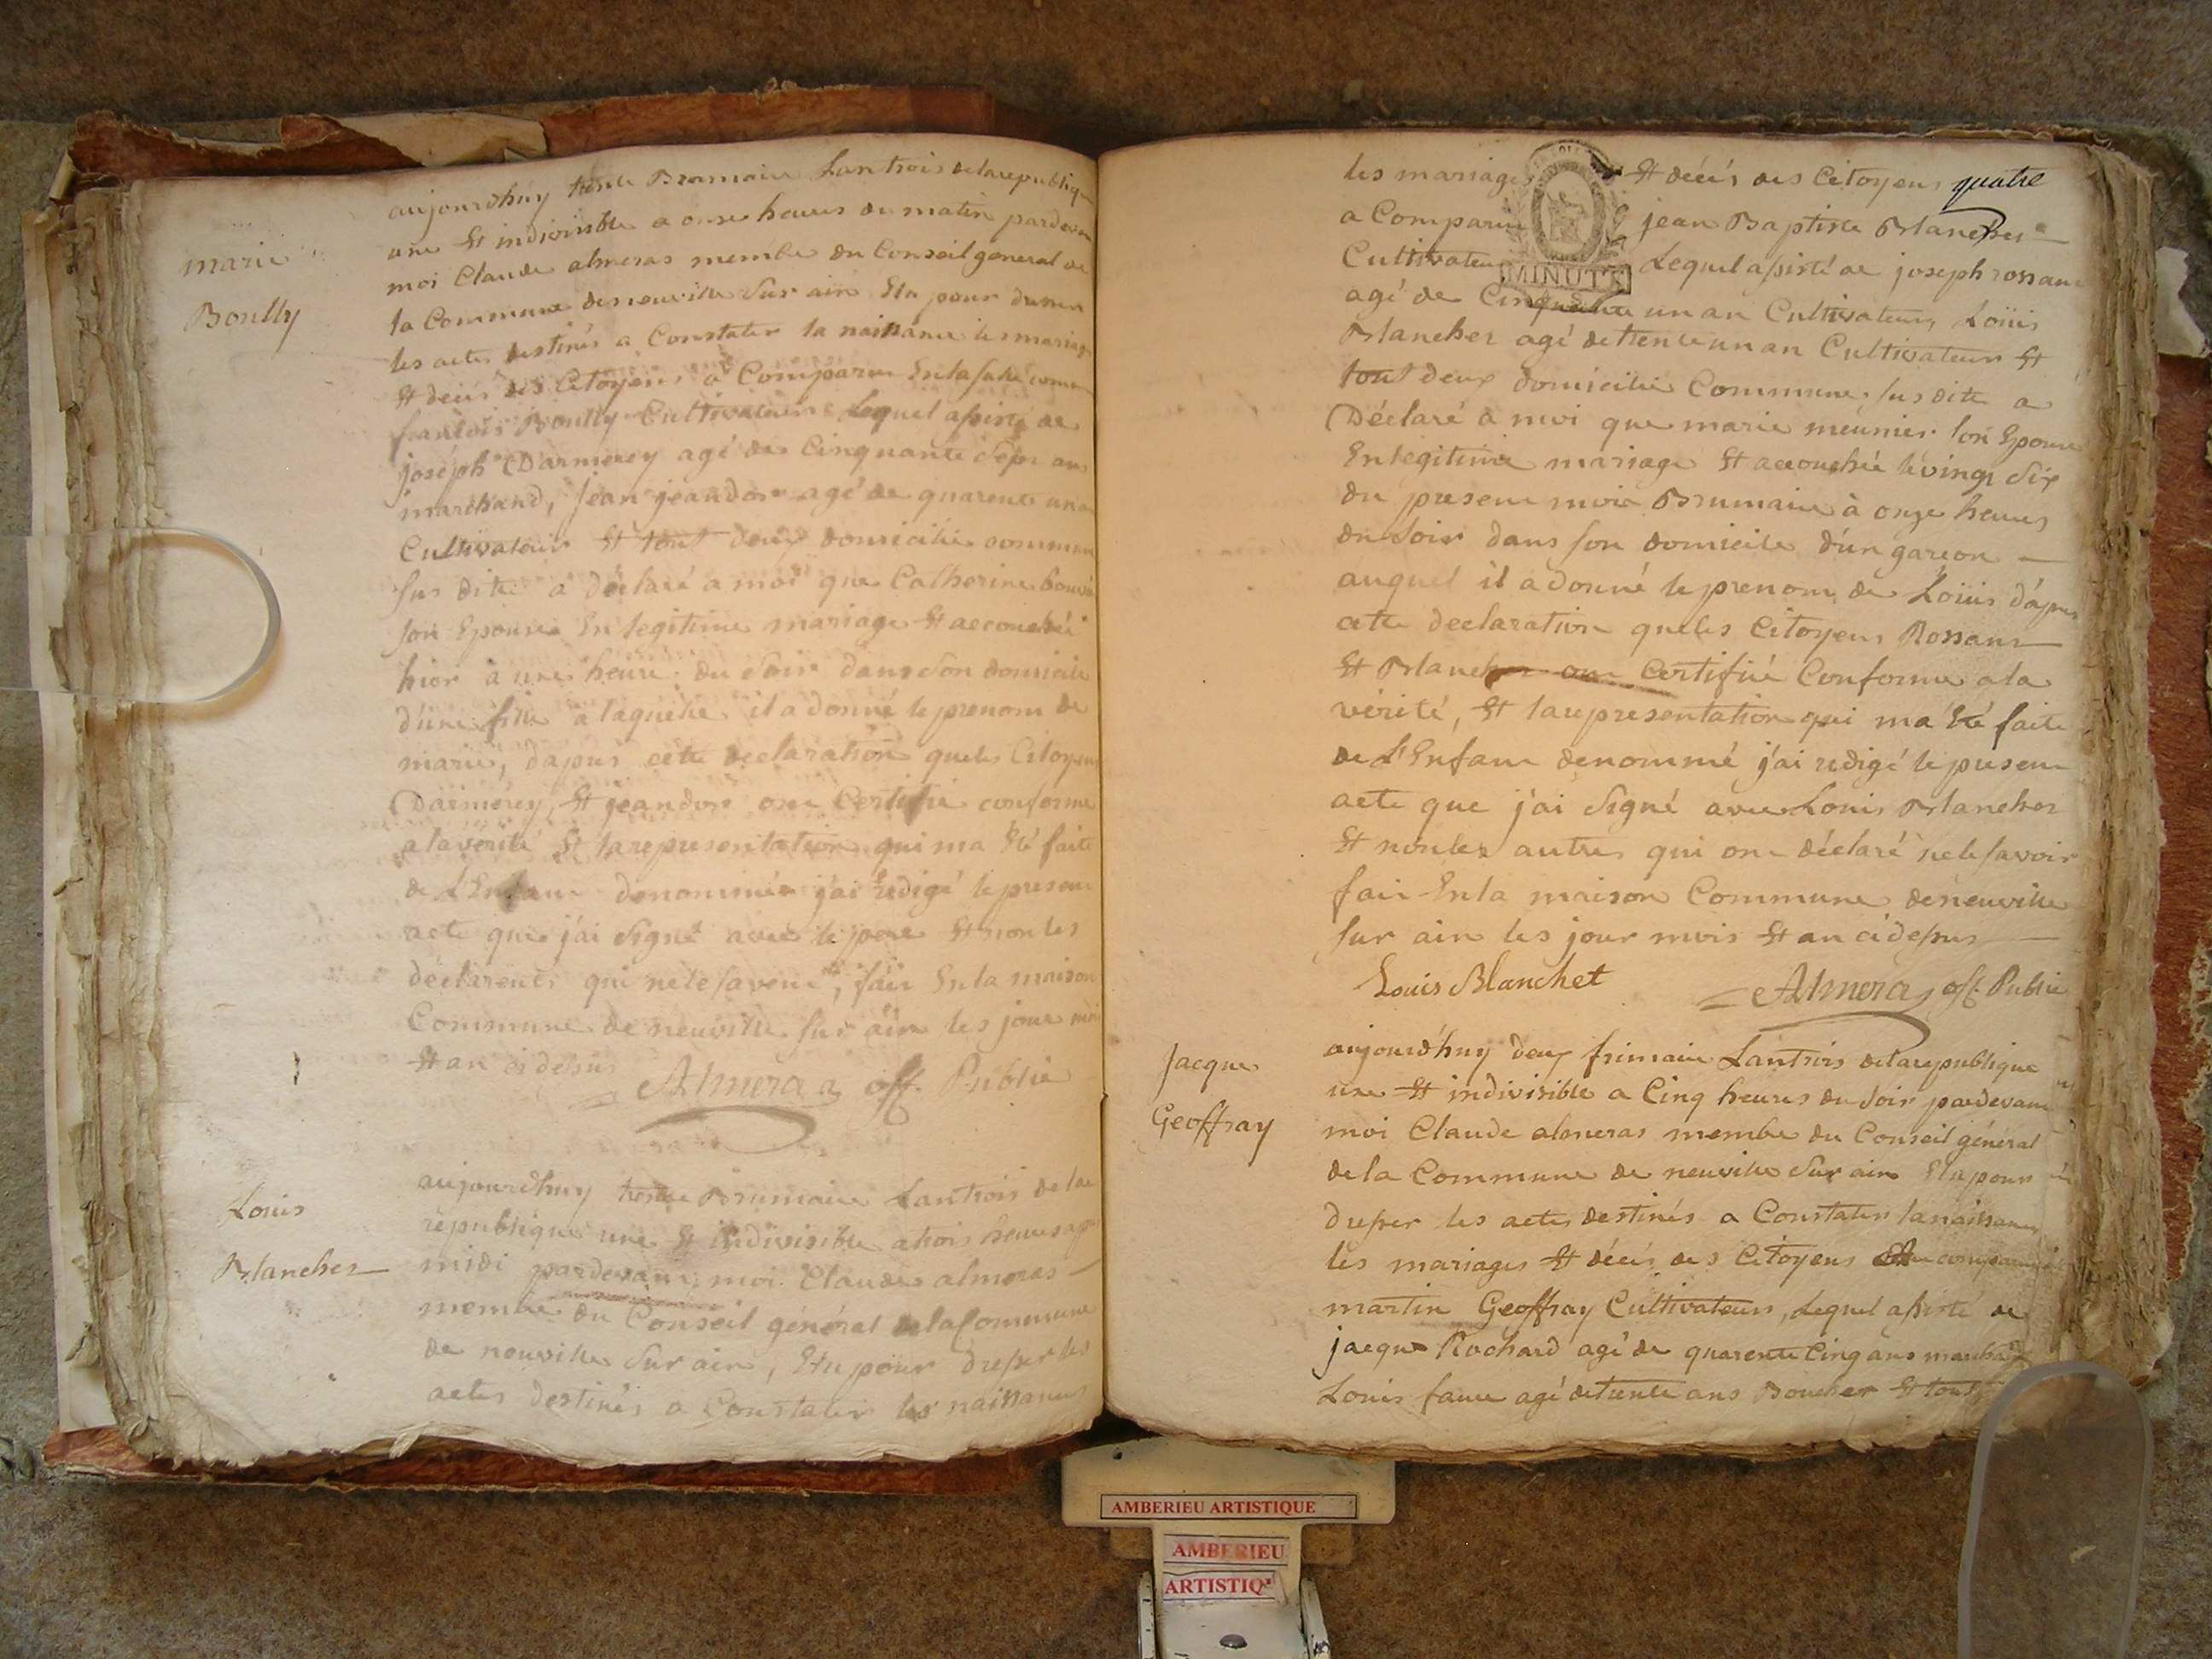 marie
Boully
aujourdhuy trente Brumaire Lantrois delarepublique
une Et indivisible a onse heures du matin pardevan
moi Claude almeras membre du Conseil general de
la Commune deneuville Sur ain Elu pour dresser
les actes destinés a Constater la naissance les mariag
Et décés des Citoyens a Comparu Enlasale comm
francois Boully Cultivateur Lequel assisté de
joseph Darmerey agé de Cinquante Sept ans
marchand, jean jeandon agé de quarente un an
Cultivateur Et tout deux domicilié commun
sus dite a déclaré a moi que Catherine bouvi
son Epouse En legitime mariage Et accouchée
hier à une heure du Soir dans Son domicile
d'une fille a laquelle il a donné le prenom de
marie, dapres cette declaration queles Citoyens
Darmerey Et jeandon ont Certifié conforme
a lavérité Et larepresentation qui ma Eté faite
de L'Enfant denommée j'ai redigé le present
acte que j'ai Signé avec le pere Et non les
déclarents qui nelesavent, fait En la maison
Commune de neuville sur ain les jour moi
Et an ci dessus
Almeras off. Public
Louis
Blanchet
aujourdhuy trente Brumaire Lantrois de la
republique une Et indivisible atrois heures ap
midi pardevant moi Claude almeras
membre du Conseil général delaCommune
de neuville Sur ain, Elu pour dresser les
actes destinés a Constater les naissances
les mariages Et décés des Citoyens quatre
a Comparu jean Baptiste Blanchet
Cultivateur MINUTE Lequel assisté de joseph rossan
agé de Cinquante un an Cultivateur, Loüis
Blanchet agé detrente un an Cultivateur Et
tout deux domicilié Commune susdite a
Déclaré a moi que marie meunier son Epouse
En legitime mariage Et accouchée levingt Six
du present mois Brumaire à onze heures
du Soir dans son domicile d'un garcon
auquel il a donné le prenom de Loüis d'apres
cete declaration queles Citoyens Rossant
Et Blanchet ont Certifié Conforme a la
vérité, Et larepresentation qui ma Eté faite
de L'Enfant denommé j'ai redigé le present
acte que j'ai Signé avec Louis Blanchet
Et nonles autres qui ont déclaré nelesavoir
fait Enla maison Commune deneuville
sur ain les jour mois Et an cidessus
Louis Blanchet Almeras off. Public
Jacque
Geoffray
aujourd'huy deux frimaire Lantrois delarepublique
une Et indivisible a Cinq heures du Soir pardevant
moi Claude almeras membre du Conseil général
de la Commune de neuville Sur ain Elu pour
dresser les actes destinés a Constater lanaissance
les mariages Et décés des Citoyens comparu
martin Geoffray Cultivateur, Lequel assisté de
jacque Rochard agé de quarente Cinq ans marchand
Louis faure agé detrente ans Boucher Et tout
AMBERIEU ARTISTIQUE
AMBERIEU
ARTISTIQ